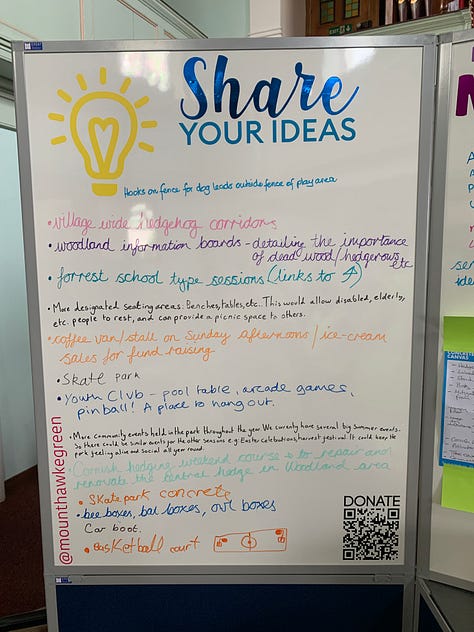 Share
YOUR IDEAS
Hooks on fence for dog leads outside fence of play area
• village wide hedgehog corridors
• woodland information boards - detailing the importance
of dead wood/hedgerows
etc
• forrest school type sessions (links to ↑)
• More designated seating areas: Benches, tables, etc. This would allow disabled, elderly,
etc. people to rest, and can provide a picnic space to others.
• coffee van/stall on Sunday afternoons/ice-cream
sales for fund raising
• Skate park
• Youth Club - pool table, arcade games,
pinball! A place to hang out.
• More community events held in the park throughout the year. We currently have several big summer events.
So there could be similar events for the other seasons e.g. Easter celebrations, harvest festival. It could keep the
park feeling alive and social all year round.
• Cornish hedging weekend course to repair and
renovate the central hedge in Woodland area
• Skatepark concrete
• bee boxes, bat boxes, owl boxes
Car boot.
• Basketball court
@mounthawkegreen
DONATE